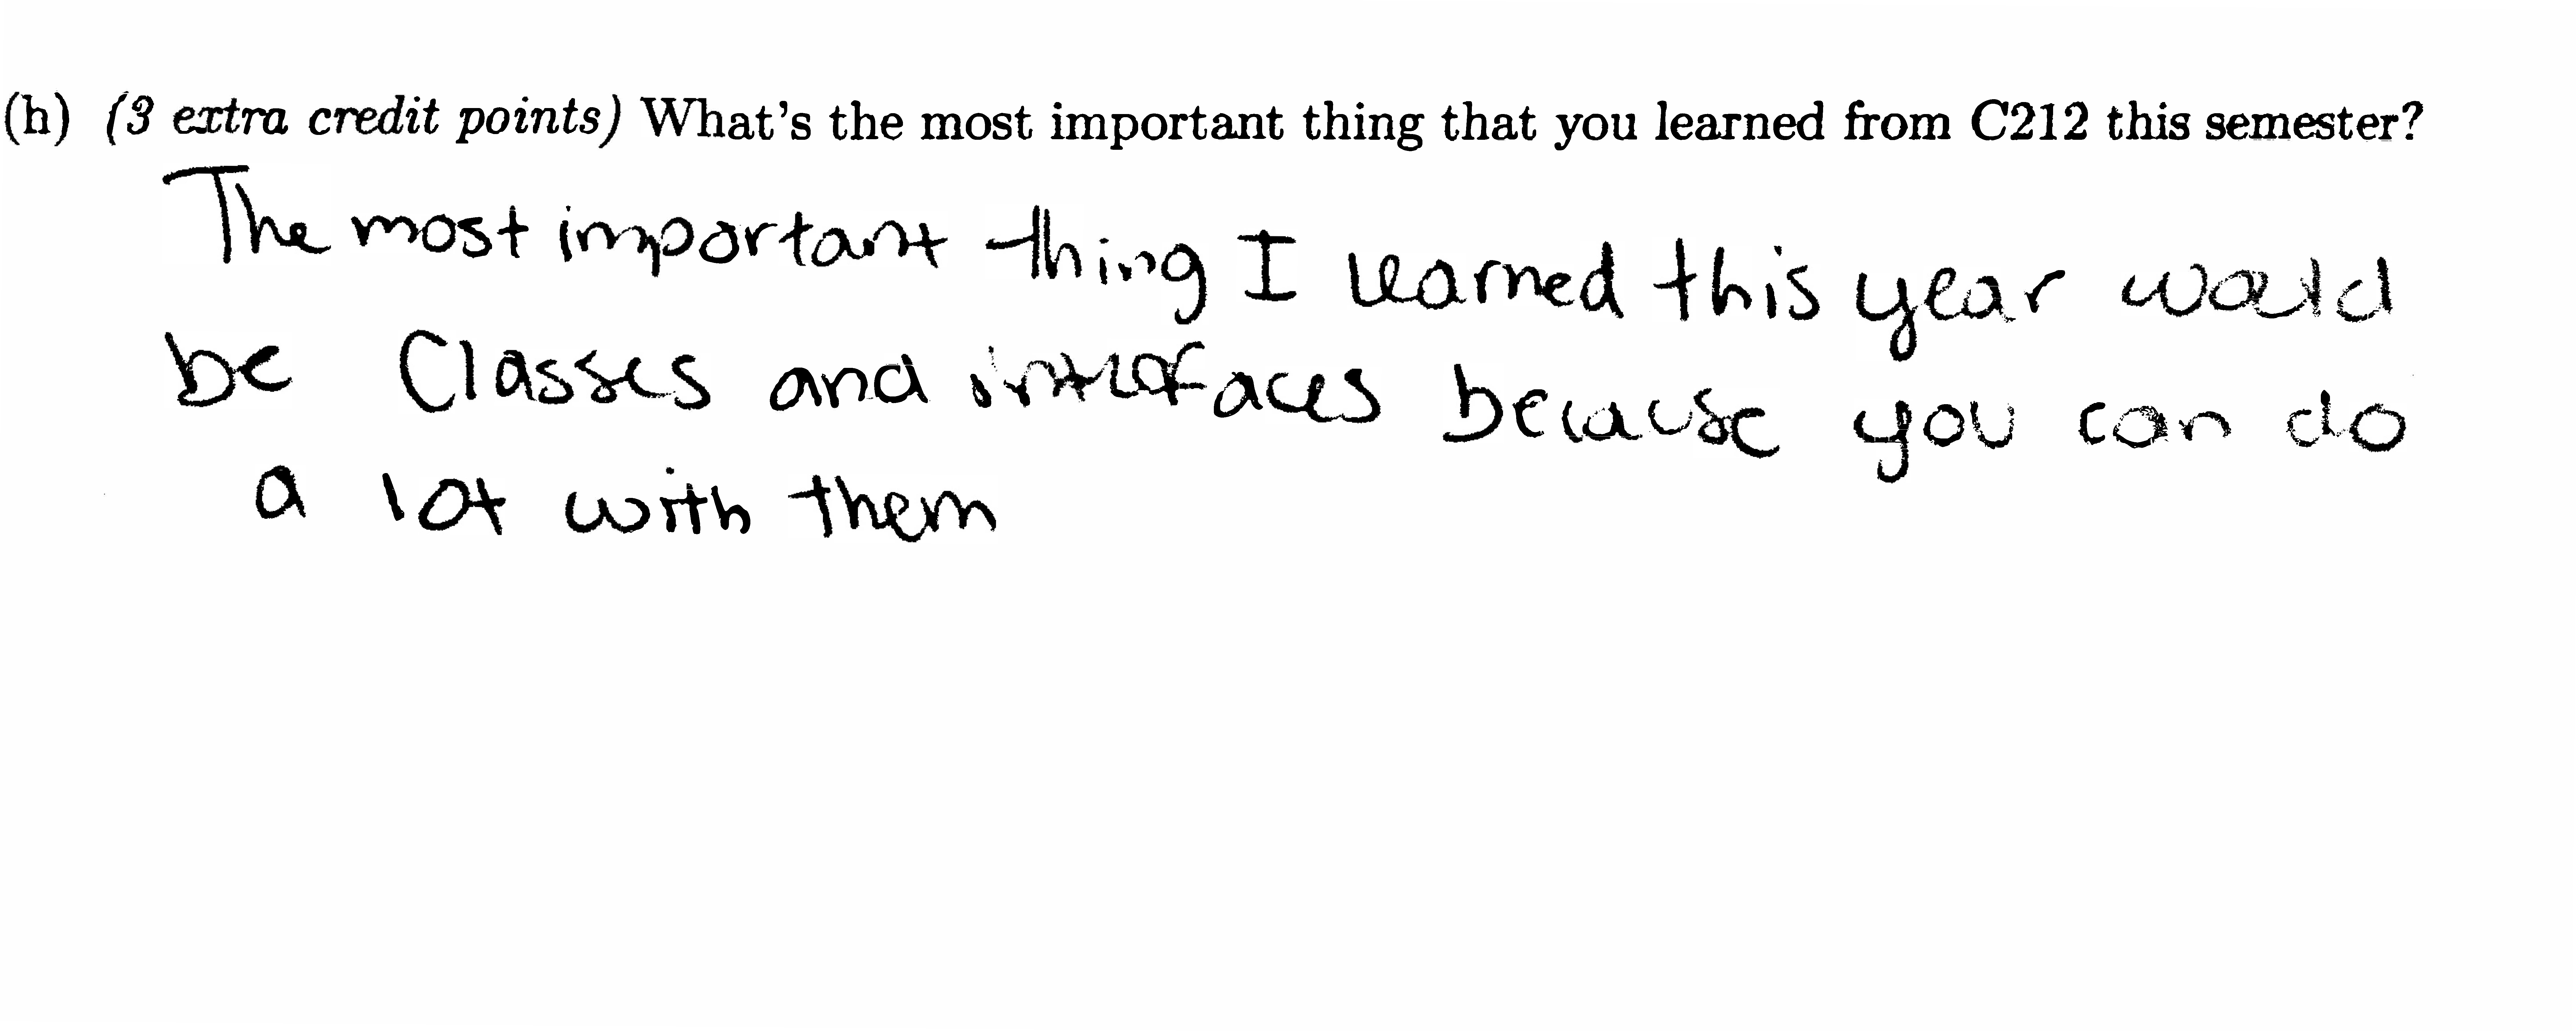 (h) (3 extra credit points) What's the most important thing that you learned from C212 this semester?
The most important thing I learned this year would
be Classes and interfaces because you can do
a lot with them